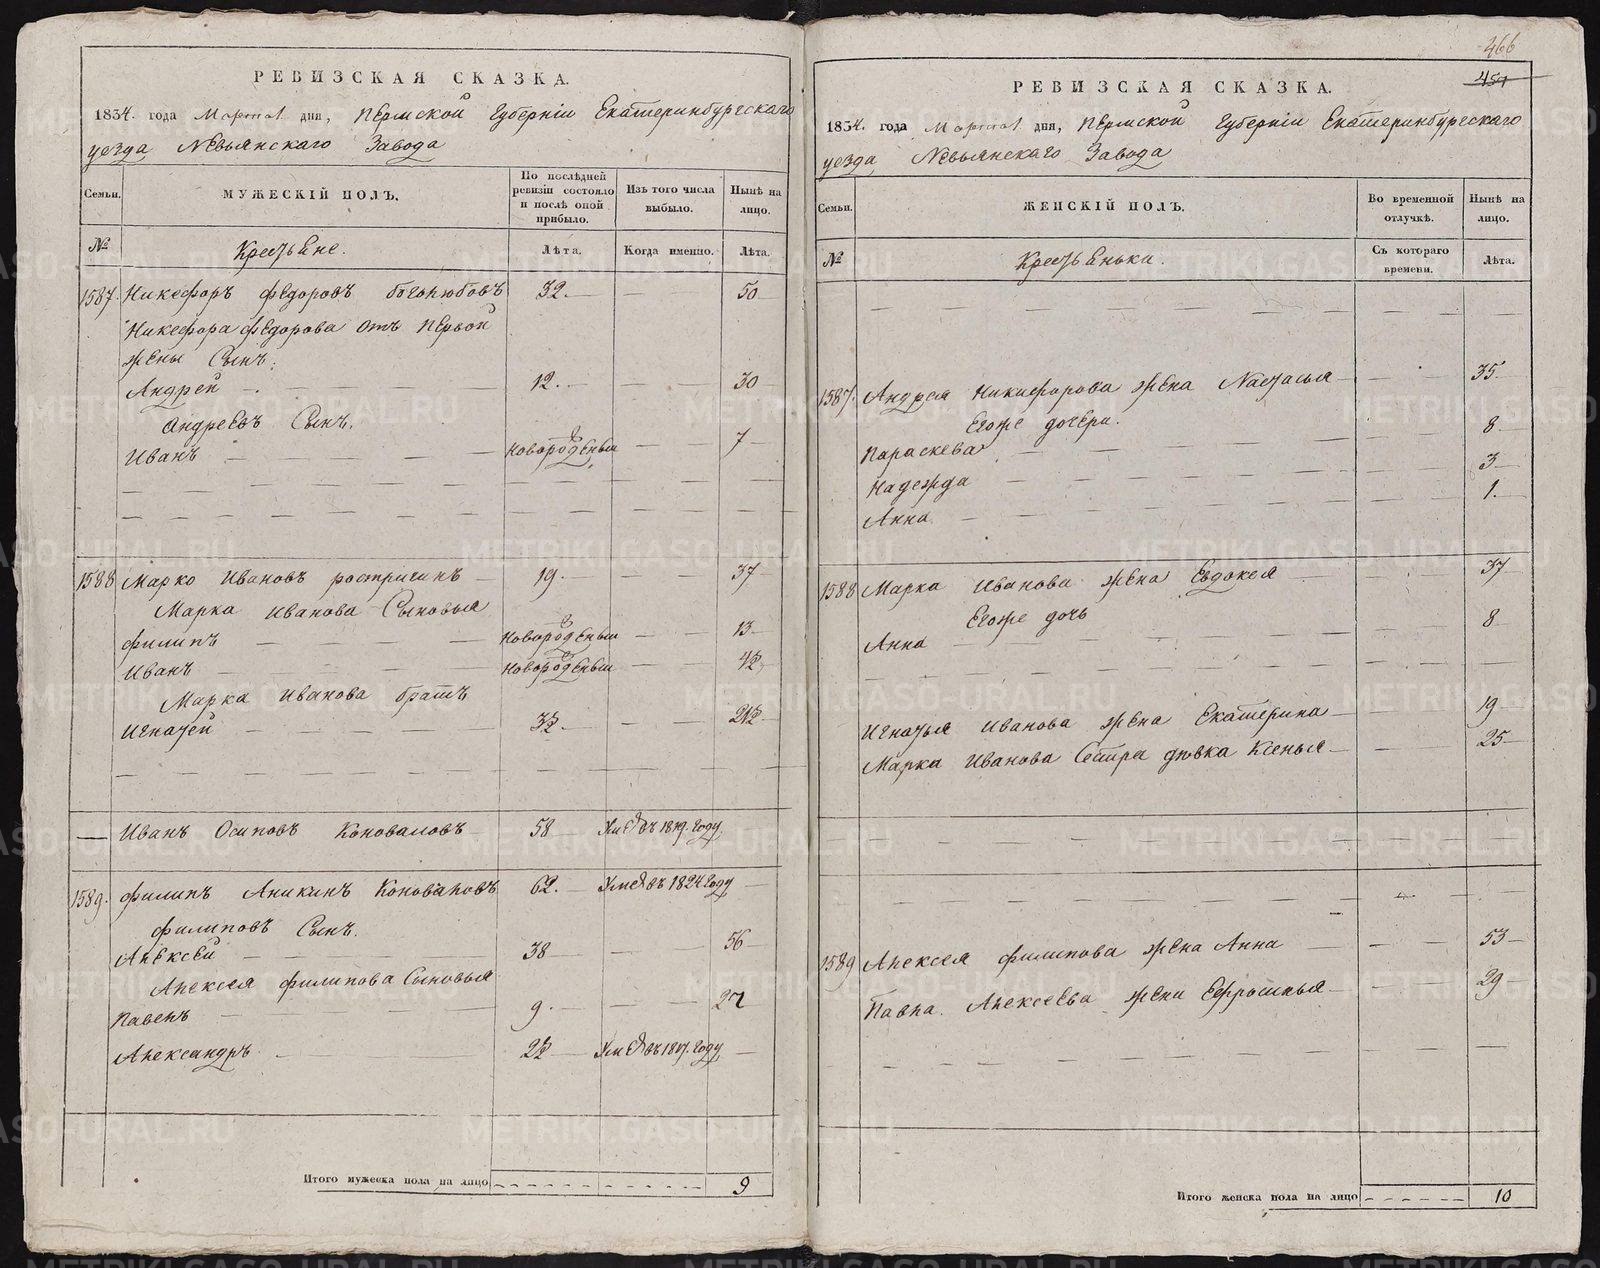 РЕВИЗСКАЯ СКАЗКА.
1834. года Марта дня, Пермской Губернiи Екатеринбургскаго
уезда Невьянскаго Завода
Семьи.
МУЖЕСКIЙ ПОЛЪ.
По послѣдней ревизiи состояло и послѣ оной прибыло.
Изъ того числа выбыло.
Нынѣ на лицо.
№
Крестьяне.
Лѣта.
Когда именно.
Лѣта.
1587. Никефоръ Федоровъ Боголюбовъ 32. 50
Никефора Федорова отъ Первой
жены Сынъ.
Андрей 12. 30
Андреевъ Сынъ.
Иванъ новорожденный 7
1588 Марко Ивановъ ростригинъ 19. 37
Марка Иванова Сыновья
филипъ новорожденный 13
Иванъ новорожденный
Марка Иванова братъ
Игнатей
Иванъ Осиповъ Коноваловъ 58 Умре въ 1819. Году.
1589. филипъ Аникинъ Коноваловъ 62. Умре въ 1824 Году
филиповъ Сынъ.
Алексей 38 56
Алексея филипова Сыновья
Павелъ 9. 27
Александръ Году
Итого мужеска пола на лицо 9
466
РЕВИЗСКАЯ СКАЗКА.
1834. года Марта дня, Пермской Губернiи Екатеринбургскаго
уезда Невьянскаго Завода
Семьи.
ЖЕНСКIЙ ПОЛЪ.
Во временной отлучкѣ.
Нынѣ на лицо.
№
Крестьянки.
Съ котораго времени.
Лѣта.
1587. Андрея Никифорова жена Настасья 35.
Егоже дочери.
Параскева 8
Надежда 3
Анна 1.
1588 Марка Иванова жена Евдокея 37
Егоже дочь
Анна 8
Игнатья Иванова жена Екатерина 19
Марка Иванова Сестра девка Ксенья 25
1589 Алексея филипова жена Анна 53
Павла Алексеева жена Ефросинья 29
Итого женска пола на лицо 10
METRIKI.GASO-URAL.RU